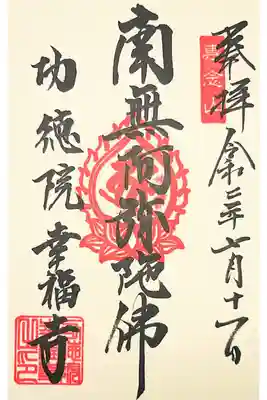 奉拝 令和二年七月十一日
南無阿弥陀佛
功徳院 幸福寺